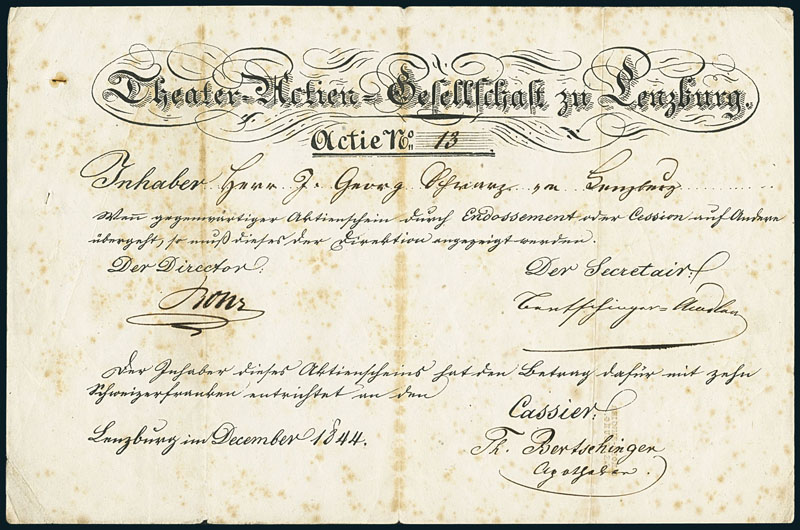 Theater-Actien-Gesellschaft zu Lenzburg.
Actie No. 13
Inhaber Herr J. Georg Schwarz in Lenzburg
Wenn gegenwärtiger Aktienschein durch Endossement oder Cession auf Andere
übergeht, so muß dieses der Direktion angezeigt werden.
Der Director:
Der Secretair:
Bertschinger-Amsler
Der Inhaber dieses Aktienscheins hat den Betrag dafür mit zehn
Schweizerfranken entrichtet an den
Cassier:
Lenzburg im December 1844.
Th. Bertschinger
Apotheker.